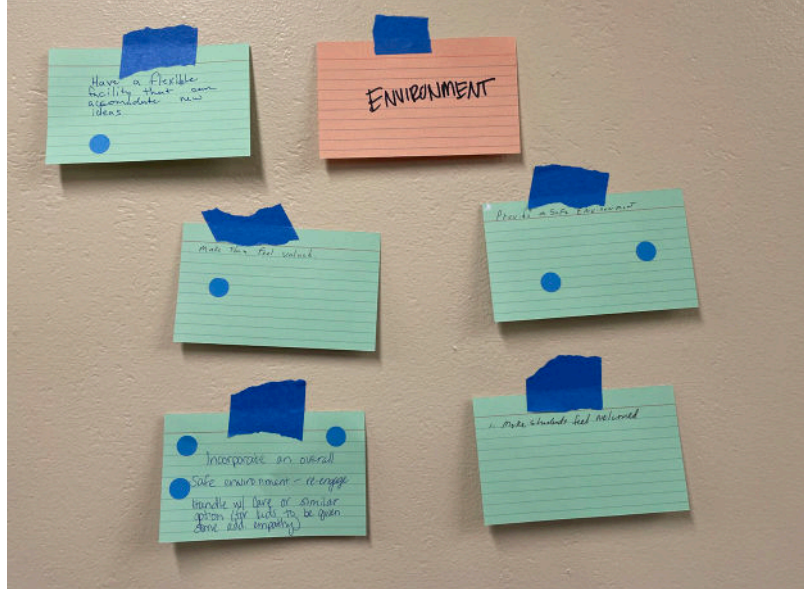 Have a flexible
facility that can
accomodate new
ideas
ENVIRONMENT
Make them feel
Provide a Safe Environment
Incorporate an overall
Safe environment - re-engage
Handle w/ Care or similar
option (for kids to be given
some add. empathy)
Make students feel welcomed